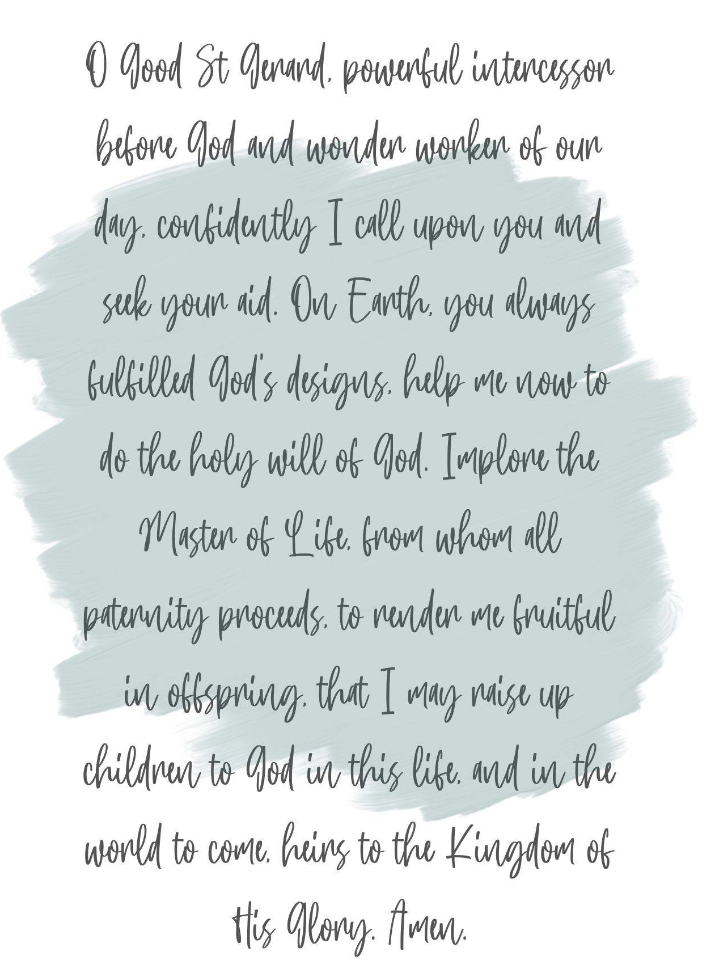 O Good St Gerard, powerful intercessor
before God and wonder worker of our
day, confidently I call upon you and
seek your aid. On Earth, you always
fulfilled God's designs, help me now to
do the holy will of God. Implore the
Master of Life, from whom all
paternity proceeds, to render me fruitful
in offspring, that I may raise up
children to God in this life, and in the
world to come, heirs to the Kingdom of
His Glory. Amen.